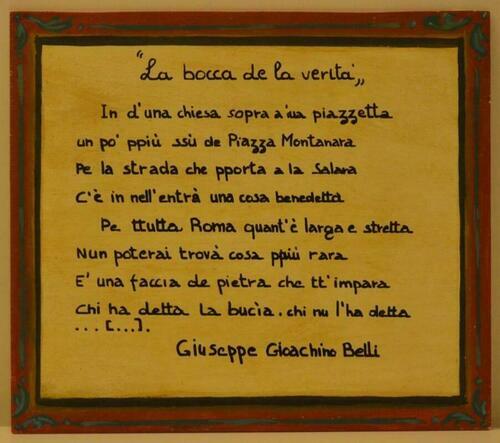 "La bocca de la verità„
In d'una chiesa sopra a'ua piazzetta
un po' ppiù ssù de Piazza Montanara
Pe la strada che pporta a la Salara
C'è in nell'entrà una cosa benedetta
Pe ttutta Roma quant'è larga e stretta
Nun poterai trovà cosa ppiù rara
E' una faccia de pietra che tt'impara
Chi ha detta la bucìa. chi nu l'ha detta
... [...].
Giuseppe Gioachino Belli